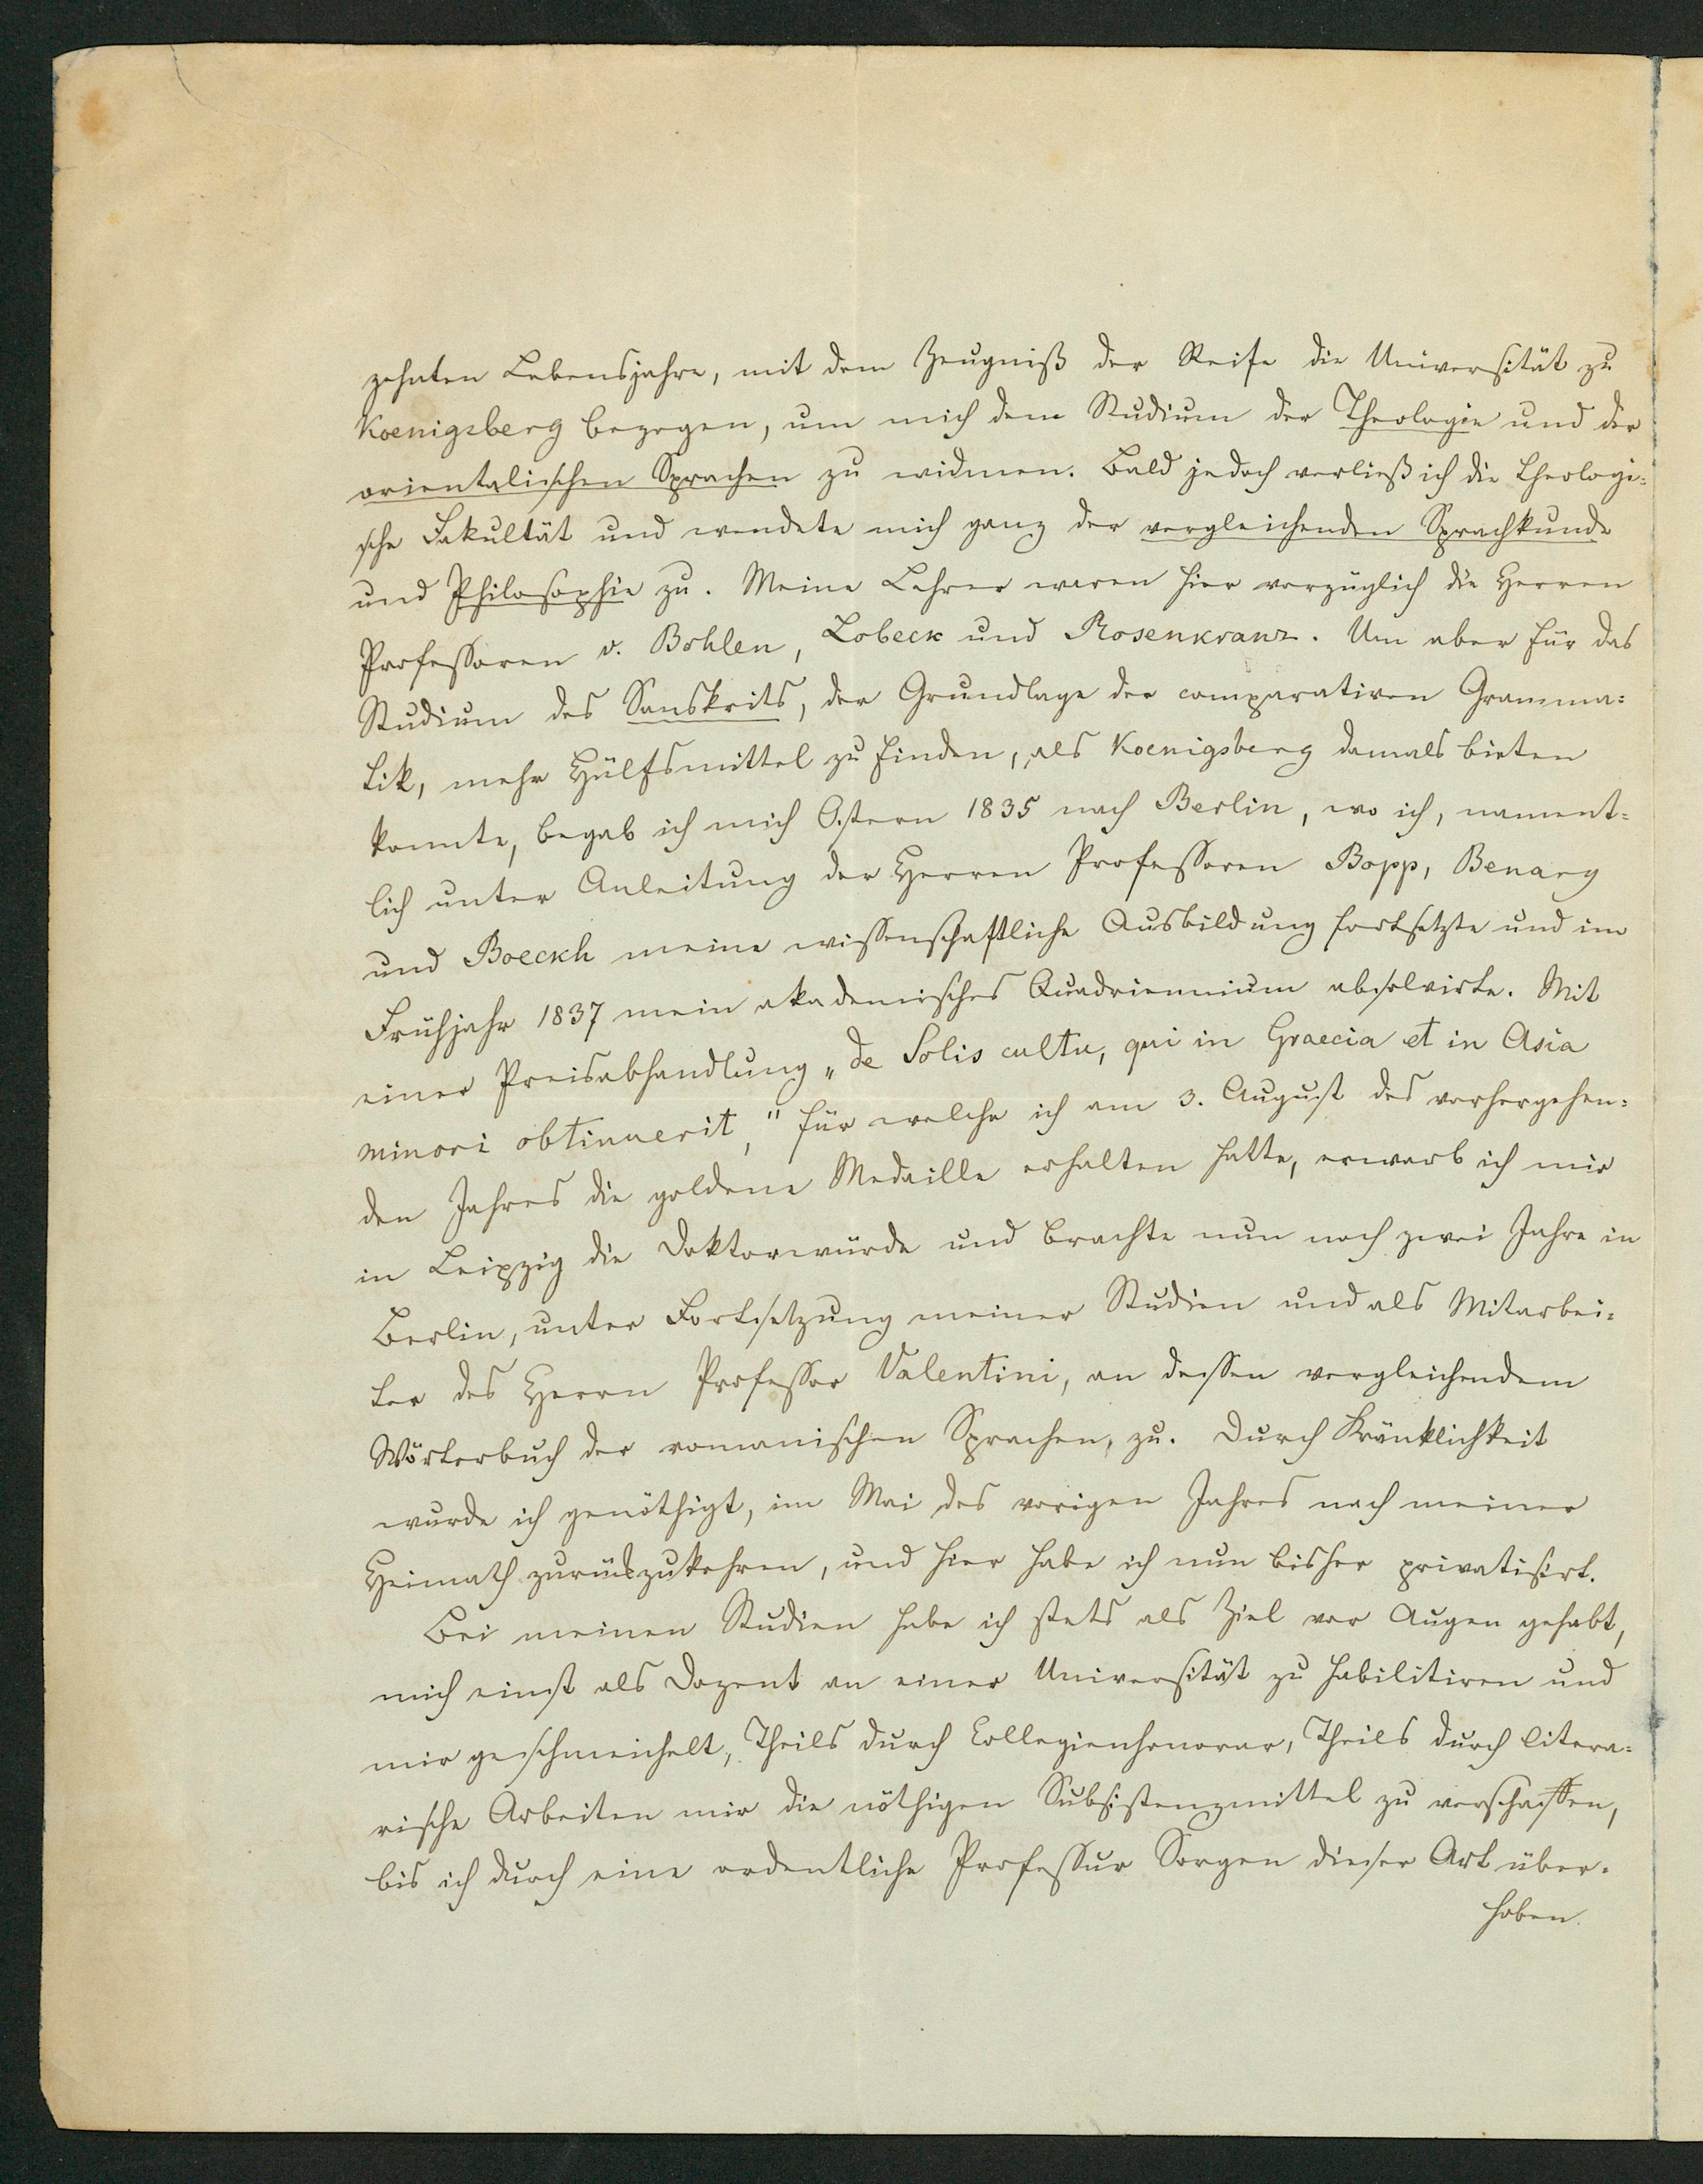 zehnten Lebensjahre, mit dem Zeugniß der Reife die Universität zu
Koenigsberg bezogen, um mich dem Studium der Theologie und der
orientalischen Sprachen zu widmen. Bald jedoch verließ ich die theologi=
sche Fakultät und wendete mich ganz der vergleichenden Sprachkunde
und Philosophie zu. Meine Lehrer waren hier vorzüglich die Herren
Professoren v. Bohlen, Lobeck und Rosenkranz. Um aber für das
Studium des Sanskrits, der Grundlage der comparativen Gramma=
tik, mehr Hülfsmittel zu finden, als Koenigsberg damals bieten
konnte, begab ich mich Ostern 1835 nach Berlin, wo ich, nament=
lich unter Anleitung der Herren Professoren Bopp, Benary
und Boeckh meine wissenschaftliche Ausbildung fortsetzte und im
Frühjahr 1837 mein akademisches Quadriennium absolvirte. Mit
einer Preisabhandlung „de Solis cultu, qui in Graecia et in Asia
minori obtinuerit," für welche ich am 3. August des vorhergehen=
den Jahres die goldene Medaille erhalten hatte, erwarb ich mir
in Leipzig die Doktorwürde und brachte nun noch zwei Jahre in
Berlin, unter Fortsetzung meiner Studien und als Mitarbei=
ter des Herrn Professor Valentini, an dessen vergleichendem
Wörterbuch der romanischen Sprachen, zu. Durch Kränklichkeit
wurde ich genöthigt, im Mai des vorigen Jahres nach meiner
Heimath zurückzukehren, und hier habe ich nun bisher privatisirt.
Bei meinen Studien habe ich stets als Ziel vor Augen gehabt,
mich einst als Dozent an einer Universität zu habilitiren und
mir geschmeichelt, Theils durch Collegienhonorar, Theils durch litera=
rische Arbeiten mir die nöthigen Subsistenzmittel zu verschaffen,
bis ich durch eine ordentliche Professur Sorgen dieser Art über=
hoben